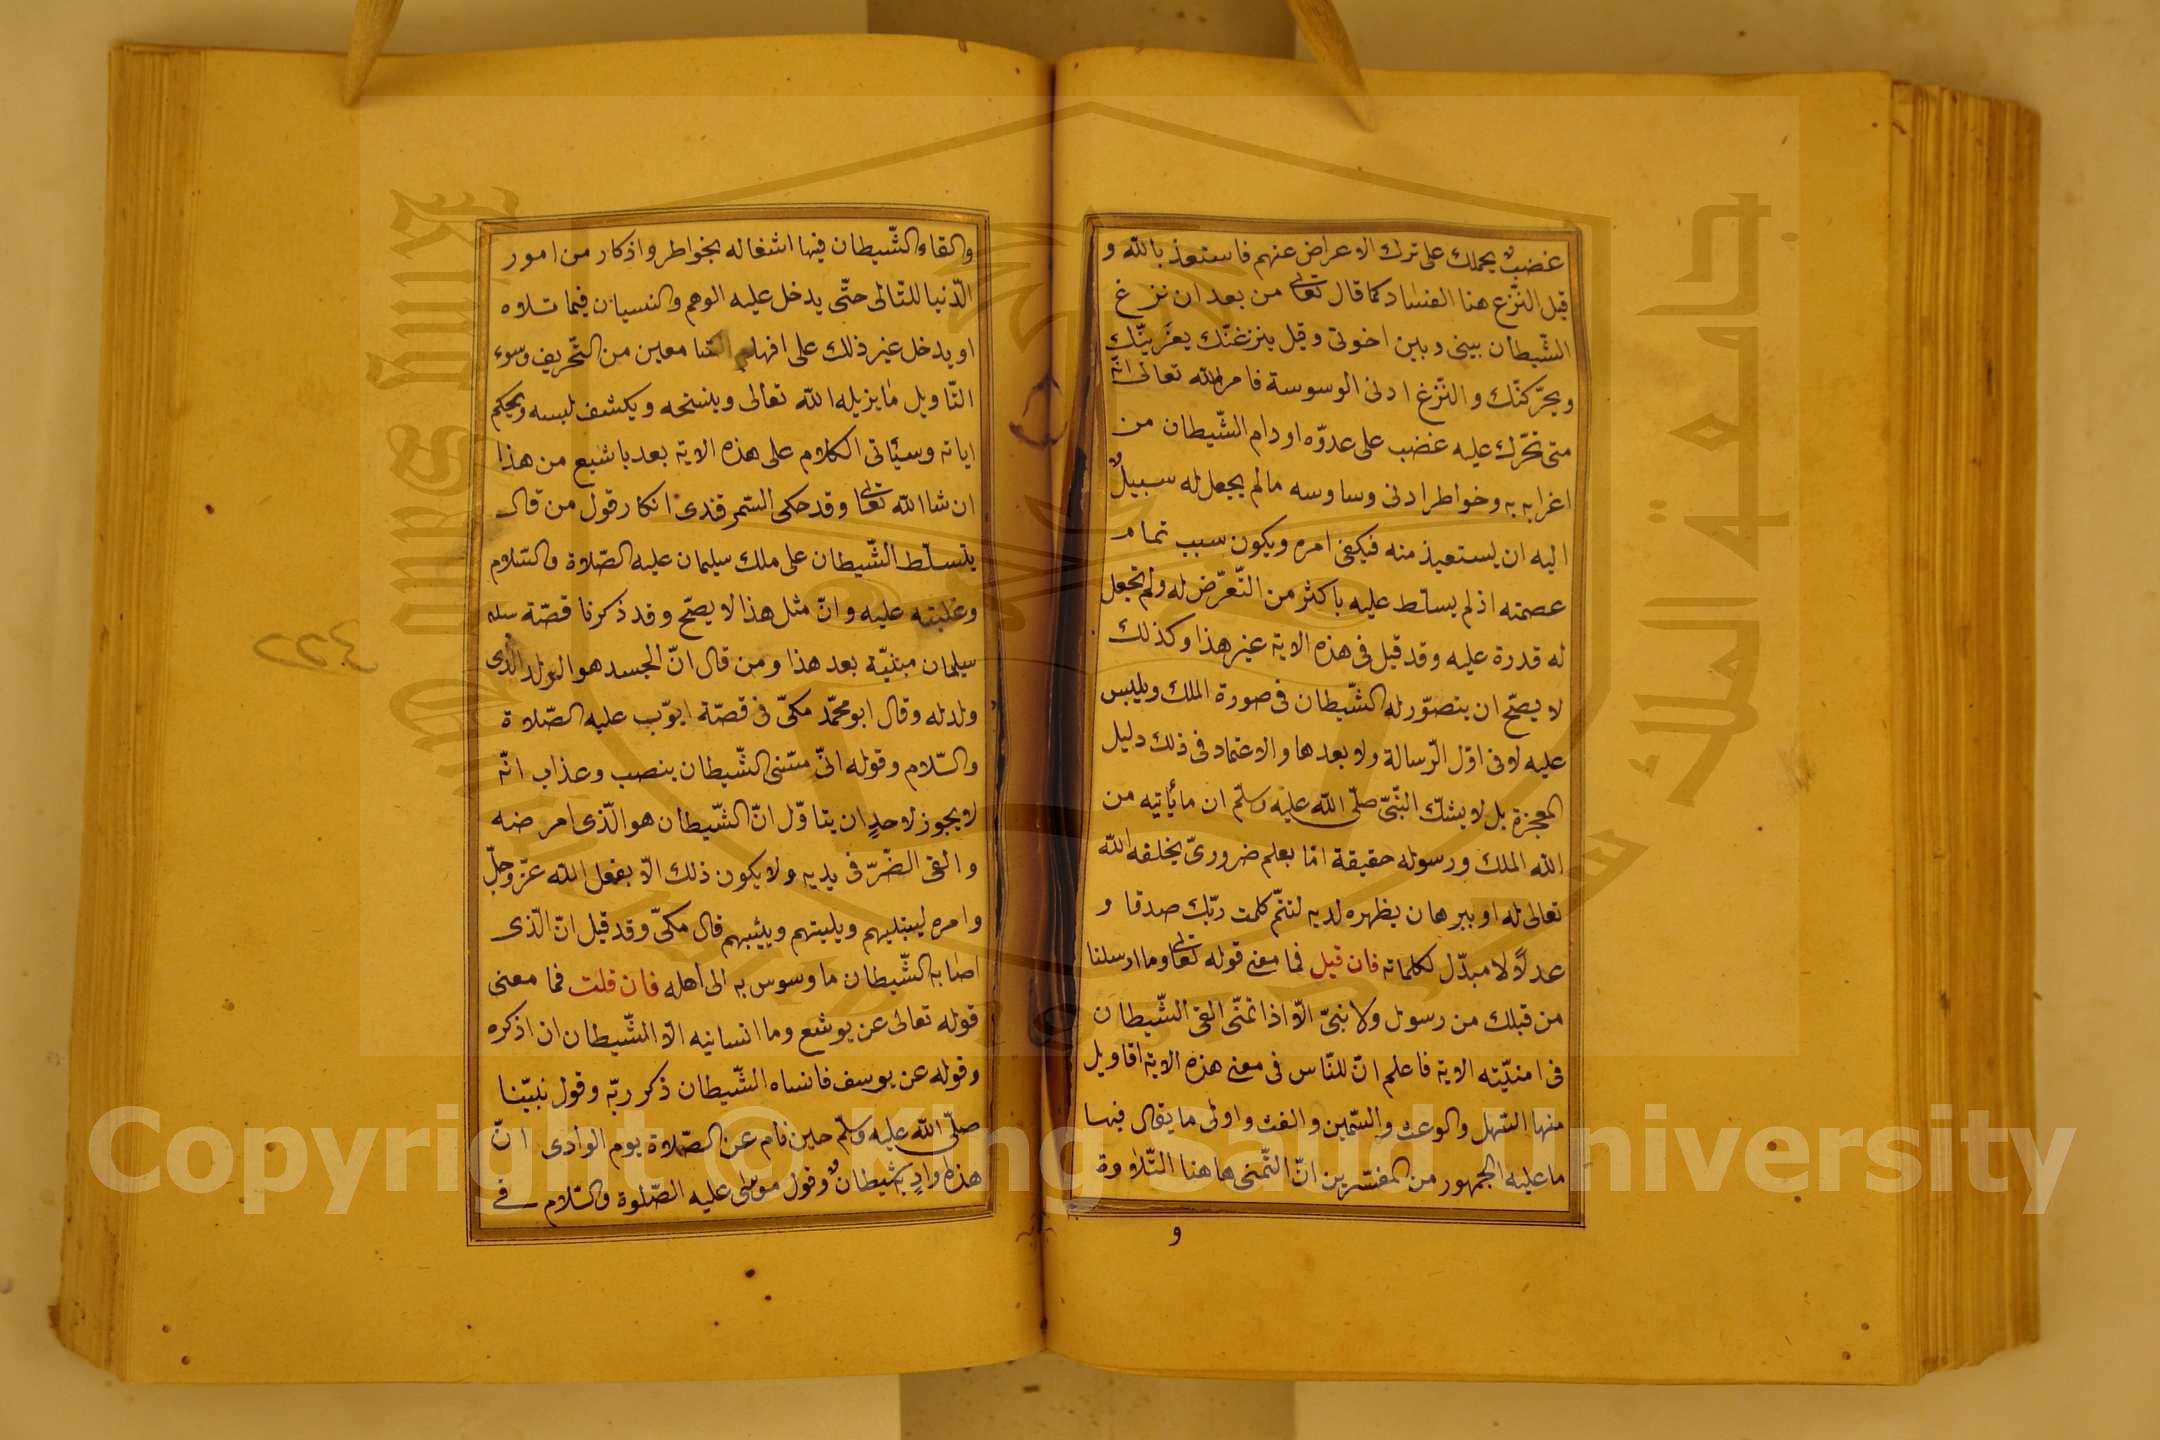 غضبٌ يحملك على ترك الاعراض عنهم فاستعذ بالله و
قيل النّزع هنا الفساد كما قال تعالى من بعد ان نزغ
الشّيطان بينى وبين اخوتى وقيل ينزغنّك يغرينّك
ويحرّكنّك والنّزغ ادنى الوسوسة فامر الله تعالى انّه
متى تحّرك عليه غضب على عدوّه او دام الشّيطان من
اغرابه به وخواطر ادنى وساوسه مالم يجعل له سبيلٌ
اليه ان يستعيذ منه فيكفى امره ويكون سبب تمام
عصمته اذ لم يسلّط عليه باكثر من التّعرّض له ولم تجعل
له قدرة عليه وقد قيل فى هذه الاية غير هذا وكذلك
لا يصحّ ان يتصوّر له الشّيطان فى صورة الملك ويلبس
عليه لا فى اوّل الرّسالة ولا بعدها والاعتماد فى ذلك دليل
المعجزة بل لا يشكّ النّبىّ صلّى الله عليه وسلّم ان ما يأتيه من
الله الملك ورسوله حقيقة امّا بعلم ضرورىّ يخلقه الله
تعالى له او ببرهان يظهره لديه لتتمّ كلمت ربّك صدقا و
عدلاً لا مبدّل لكلماته فان قيل فما معنى قوله تعالى وما ارسلنا
من قبلك من رسول ولا نبىّ الاّ اذا تمنّى القى الشّيطان
فى امنيّته الاية فاعلم انّ للنّاس فى معنى هذه الاية اقاويل
منها السّهل والوعث والسّمين والغث واولى ما يقال فيها
ما عليه الجمهور من المفسّرين انّ التّمنى هاهنا التّلاوة
و
والقاء الشّيطان فيها اشغاله بخواطر واذكار من امور
الدّنيا للتّالى حتّى يدخل عليه الوهم والنسيان فيما تلاه
او يدخل غير ذلك على افهام السّامعين من التّحريف وسوء
التّاويل ما يزيله الله تعالى وينسخه ويكشف لبسه ويحكم
اياته وسيأتى الكلام على هذه الاية بعد باشبع من هذا
ان شا الله تعالى وقد حكى السّمرقندى انكار قول من قال
يتسلّط الشّيطان على ملك سليمان عليه الصّلاة والسّلام
وغلبته عليه وانّ مثل هذا لا يصحّ وقد ذكرنا قصّة سله
سليمان مبنيّة بعد هذا ومن قال انّ الجسد هو الولد الّذى
ولد له وقال ابو محمّد مكىّ فى قصّة ايوّب عليه الصّلاة
والسّلام وقوله انىّ مسّنى الشّيطان بنصب وعذاب انّه
لا يجوز لاحدٍ ان يتاوّل انّ الشّيطان هو الّذى امرضه
والقى الضّرّ فى يديه ولا يكون ذلك الاّ بفعل الله عزّ وجلّ
وامره ليبتليهم ويثبتهم ويثيبهم قال مكىّ وقد قيل انّ الّذى
اصابه الشّيطان ما وسوس به الى اهله فان قلت فما معنى
قوله تعالى عن يوشع وما انسانيه الاّ الشّيطان ان اذكره
وقوله عن يوسف فانساه الشّيطان ذكر ربّه وقول نبيّنا
صلّى الله عليه وسلّم حين نام عن الصّلاة يوم الوادى انّ
هذا وادٍ به شيطانٌ وقول موسى عليه الصّلوة والسّلام فى
Copyright © King Saud University
جامعة الملك سعود